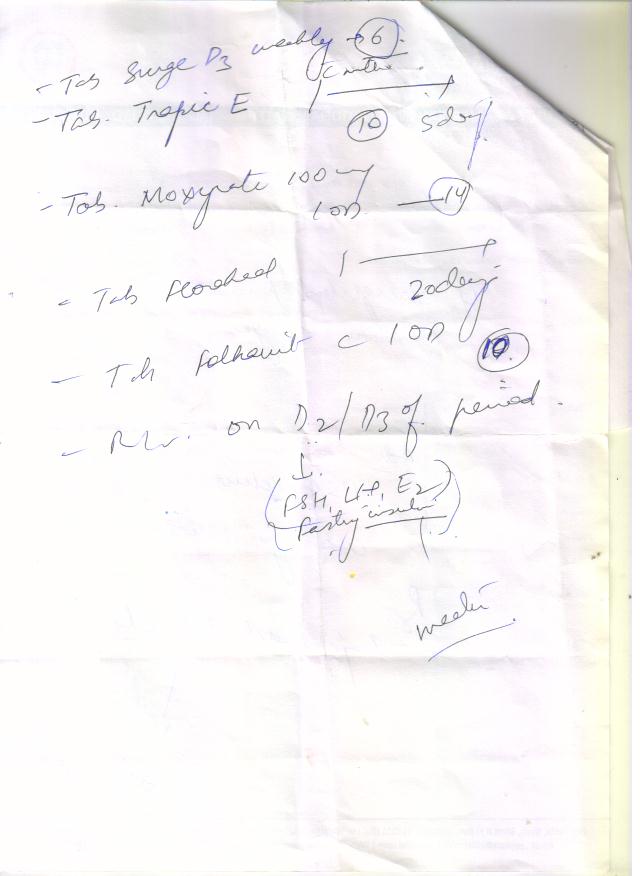 - Tab Surge D3 weekly → 6
c milk
- Tab. Tropic E
10 5 days
- Tab. Moxyrate 100 mg
1 OD — 14
- Tab Floraheal 1
20 days
- Tab Folhauit c 1 OD
10.
- R/w. on D2/D3 of period.
↓
(FSH, LH, E2)
fasting insulin